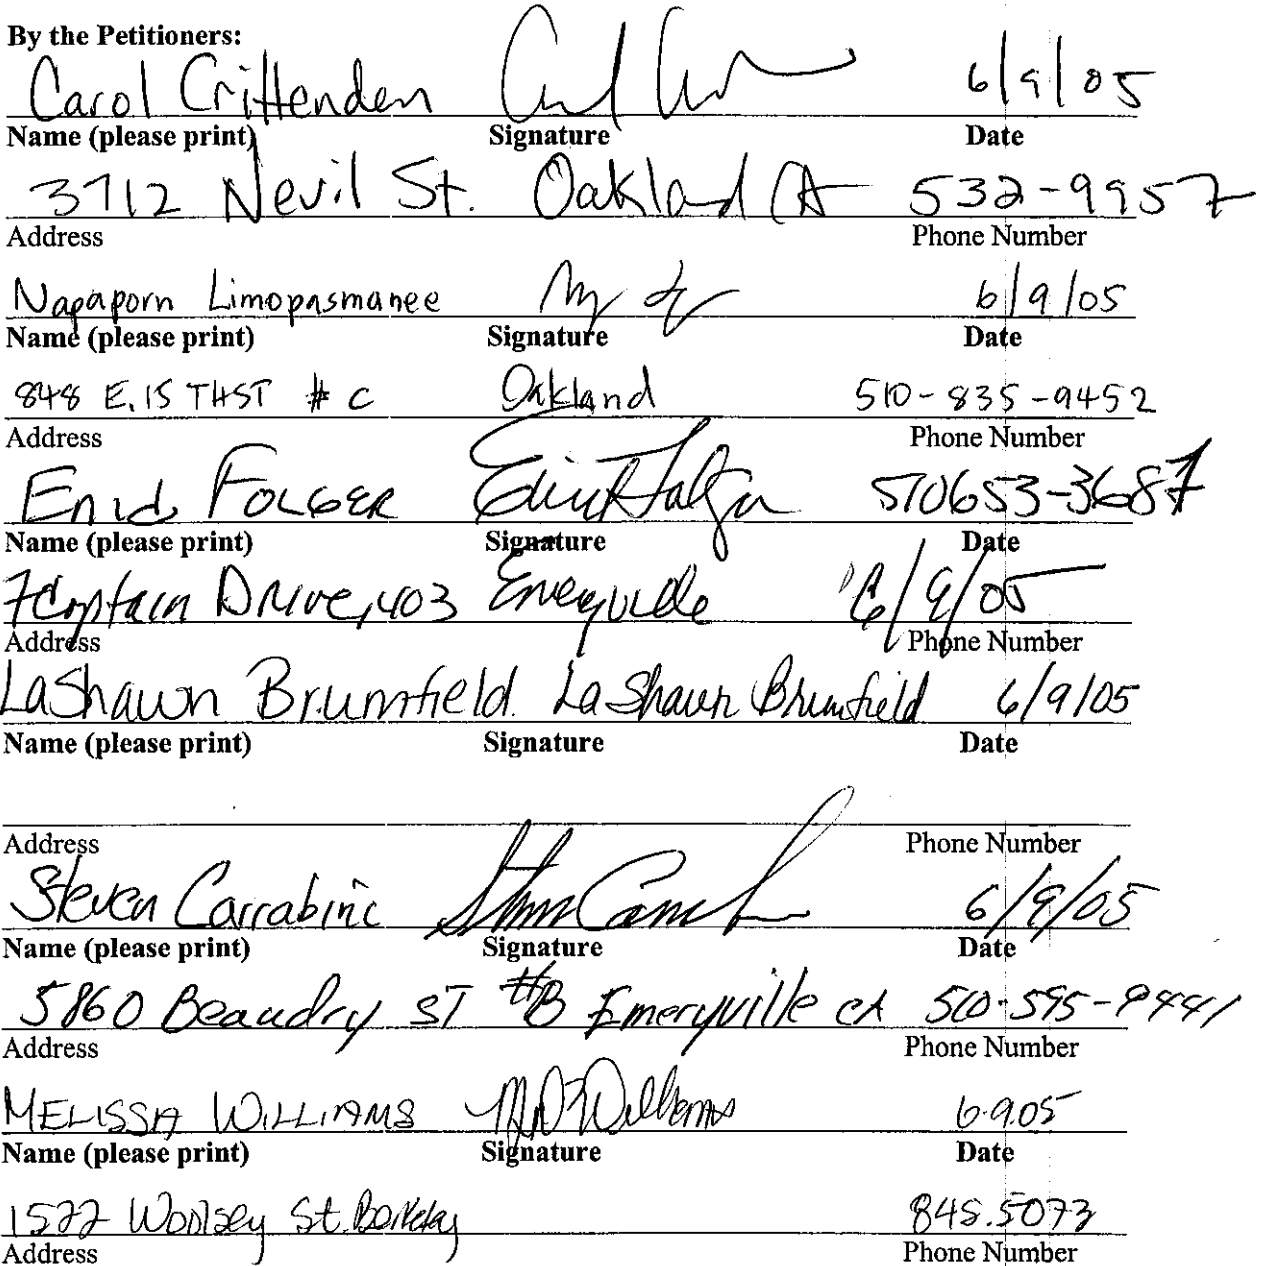 By the Petitioners:
Carol Crittenden 6/9/05
Name (please print) Signature Date
3712 Nevil St. Oakland CA 532-9957
Address Phone Number
Napaporn Limopasmanee 6/9/05
Name (please print) Signature Date
848 E. 15 TH ST # C Oakland 510-835-9452
Address Phone Number
Enid FOLGER Enid Folger 510653-3687
Name (please print) Signature Date
7 Captain Drive, 403 Emeryville 6/9/05
Address Phone Number
LaShawn Brumfield LaShawn Brumfield 6/9/05
Name (please print) Signature Date
Address Phone Number
Steven Carrabinc 6/9/05
Name (please print) Signature Date
5860 Beaudry ST #B Emeryville CA 510-595-9441
Address Phone Number
MELISSA WILLIAMS MD Williams 6.9.05
Name (please print) Signature Date
1522 Woolsey St. Berkeley 845.5073
Address Phone Number